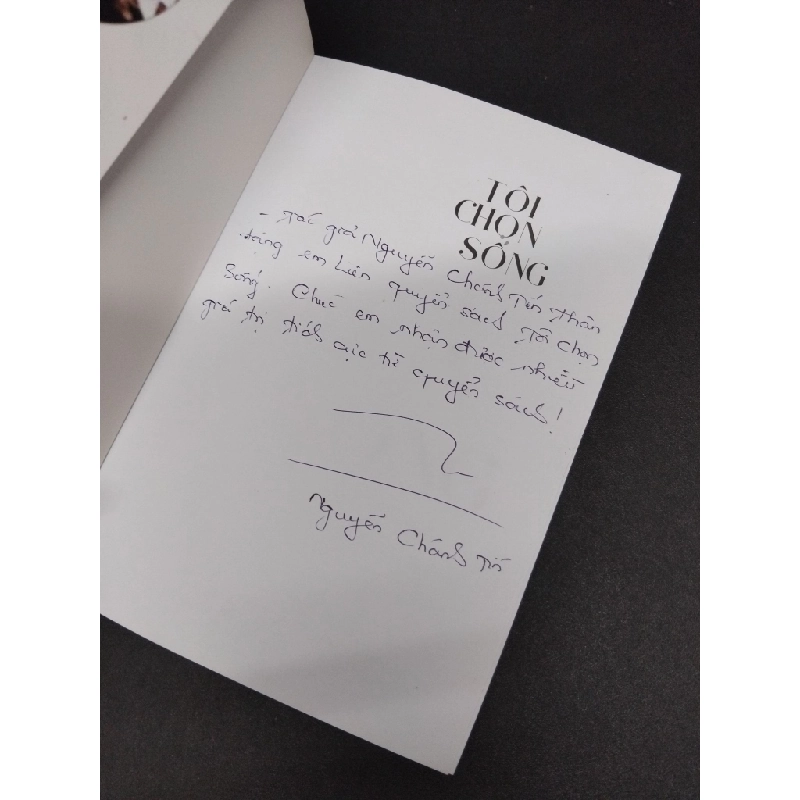 TÔI
CHỌN
SỐNG
- Tác giả Nguyễn Chánh Tín thân
tặng em Liên quyển sách Tôi Chọn
Sống! Chúc em nhận được nhiều
giá trị tích cực từ quyển sách!
Nguyễn Chánh Tín